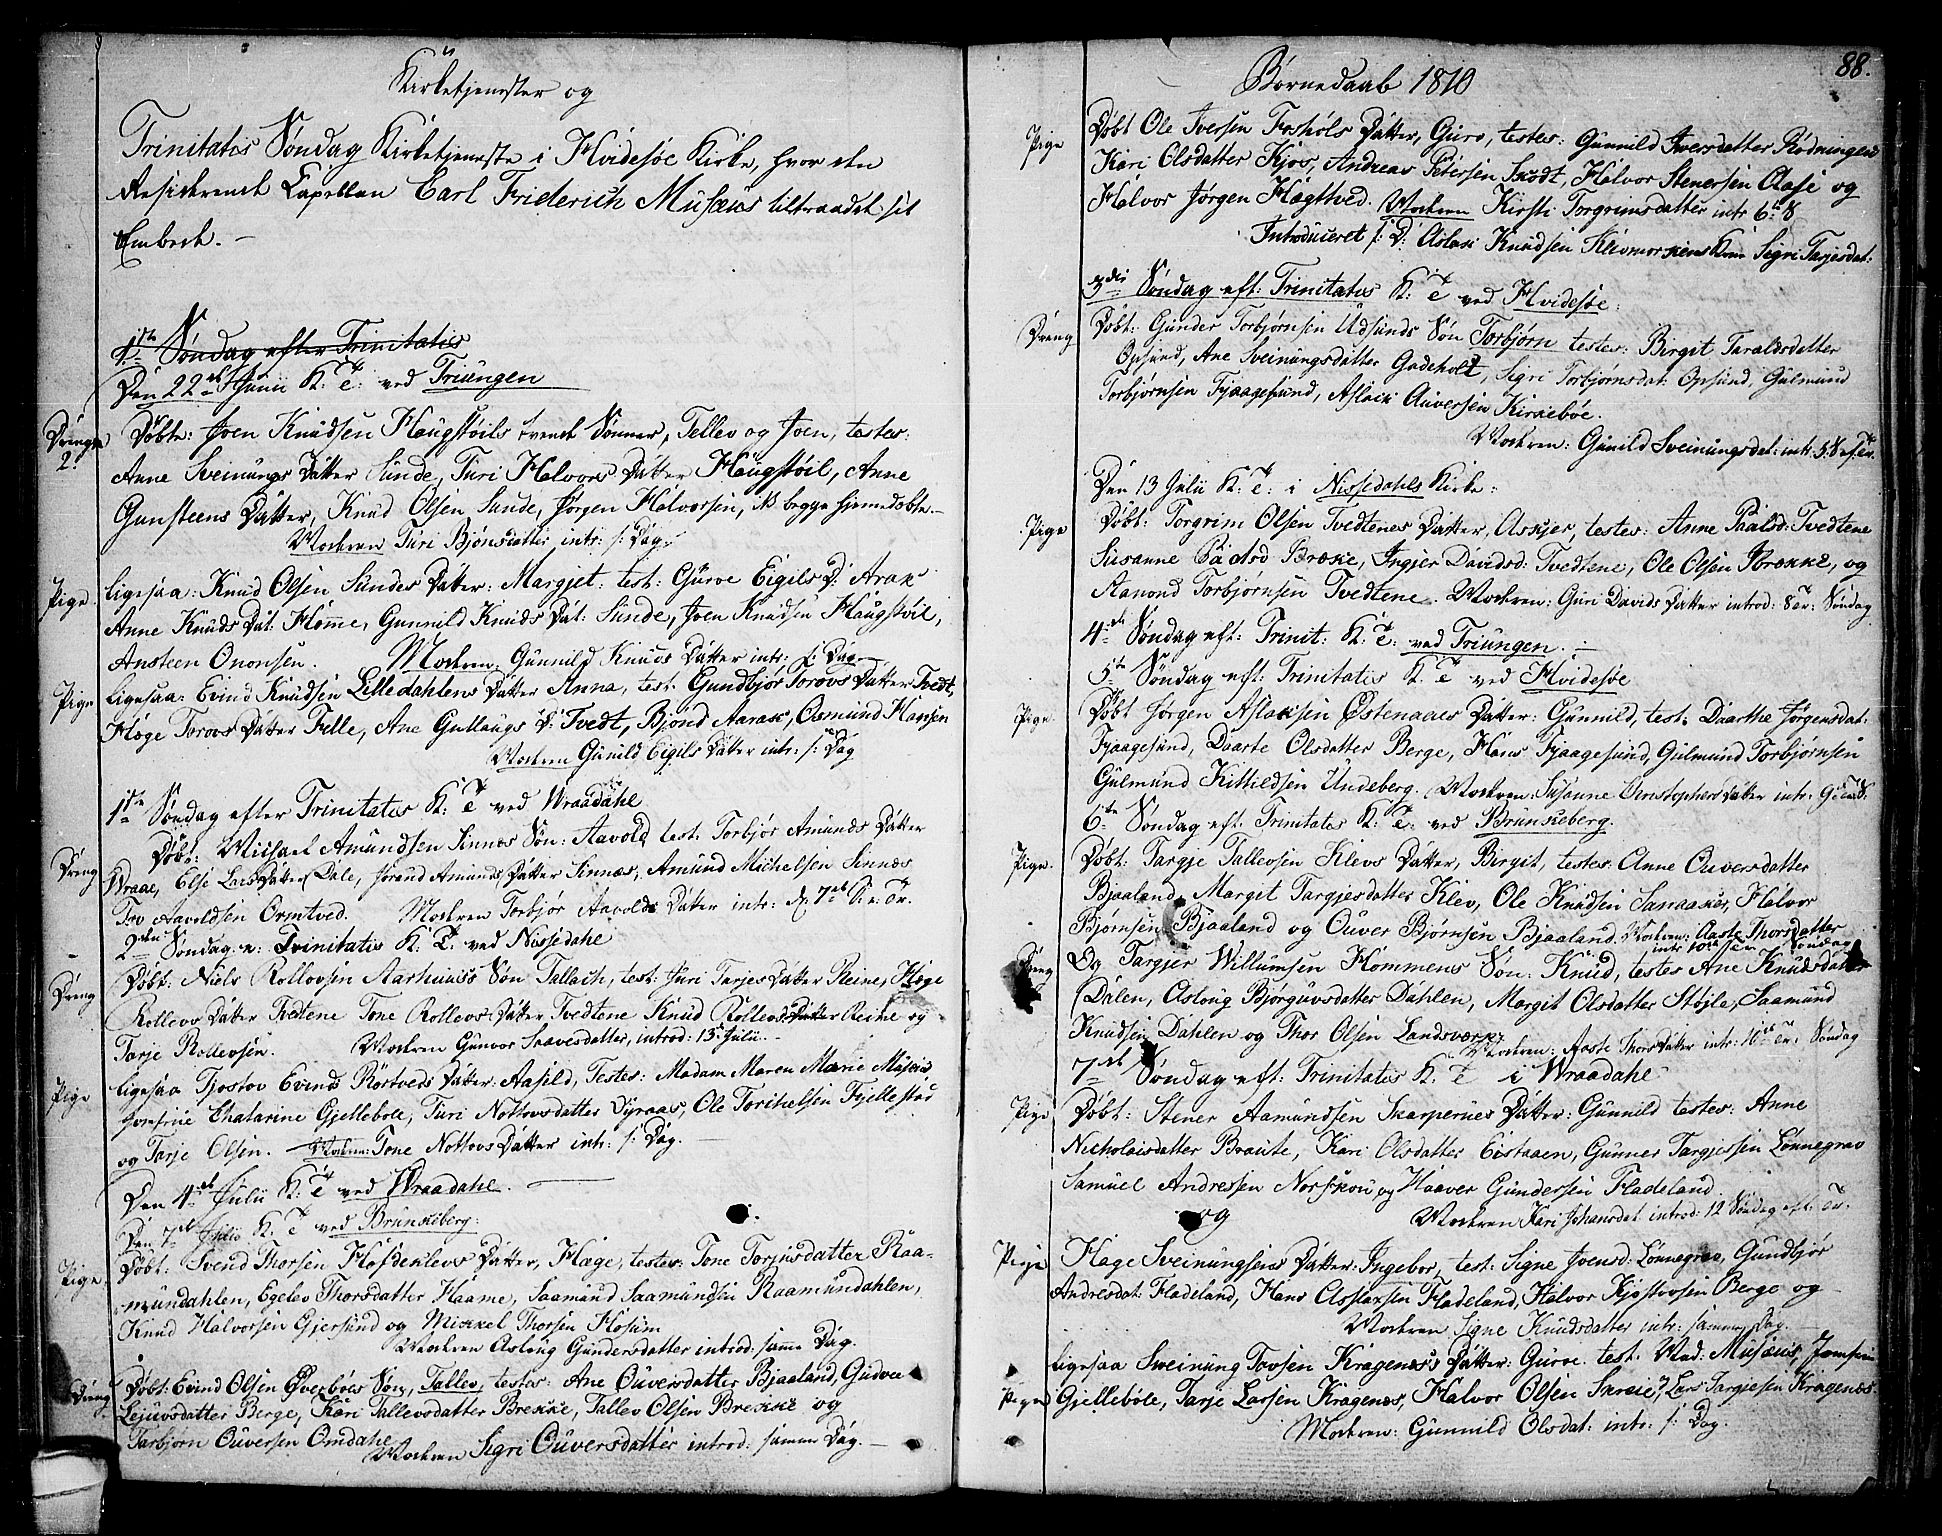 Kirketjenester og
Trinitatis Søndag Kirketjeneste i Hvidesøe Kirke, hvor den
Residerende Capellan Carl Friderich Musæus tiltraadet sit
Embede. –
1ste Søndag efter Trinitatis
Den 22de Junii K: T: ved Triungen
Drenge 2. Døbte: Joen Knudsen Haugstøils tvende Sønner, Tellev og Joen, testes:
Anne Sveinungs Datter Sunde, Turi Halvors Datter Haugstøil, Anne
Gunsteens Datter, Knud Olsen Sunde, Jørgen Halvorsen, begge hjemedøbte –
Modren Turi Bjønsdatter intr: s: Dag.
Pige. ligesaa: Knud Olsen Sundes Datter: Margjet. test: Gurve Eigils D: Arak
Anne Knuds Dat: Homme, Gunnild Knuds Dat: Sunde, Joen Knudsen Haugstøil,
Ansteen Ononsen. Modren: Gunnild Knuds Datter intr: s: Dag.
Pige ligesaa: Evind Knudsen Lilledahlens Datter Anna, test: Gundbjor Torovs Datter Tvedt,
Høge Torovs Datter Felle, Ane Gullaugs D: Tvedt, Bjond Aarak, Osmund Hansen
Modren Gunild Eigils Datter intr: s: Dag
1ste Søndag efter Trinitatis K: T: ved Wraadahl
Dreng Døbt: Michael Amundsen Sinnes Søn: Aavold test: Torbjør Amunds Datter
Wraae, Else Lars Datter Dale, Jorand Amunds Datter Sinnes, Amund Michelsen Sinnes
Tov Aavoldsen Ormtved. Modren Torbjør Aavolds Datter intr: d. 7de S: e: Tr.
2den Søndag e: Trinitatis K: T: ved Nissedahl
Dreng Døbt: Niels Rollevsen Aarhuuss Søn Tallach, test: Juri Tarjes Datter Reine, Høge
Rollevs Datter Tvedtene Tone Rollevs Datter Tvedtene Knud Rollevs Reine og
Tarje Rollevsen. Modren Gunvor Saavesdatter, introd: 13de Julii.
Pige ligesaa Tjostov Evinds Rørtveds Datter: Aasild, Testes: Madam Maren Marie Musæus
Jomfrue Chatarine Gjellebole, Turi Nottovsdatter Dyraas, Ole Torikelsen Fjellestad
og Tarje Olsen. Modren: Tone Nottovs Datter intr: s: Dag. –
Den 4de Julii K: T: ved Wraadahl.
Den 7de Julii K: T: ved Brunkeberg:
Pige. Døbt: Svend Thorsen Hofdeklevs Datter, Høge, testes: Tone Torjusdatter Raa-
mundahlen, Egelev Thorsdatter Haame, Saamund Saamundsen Raamundahlen,
Knud Halvorsen Gjersund og Mikkel Thorsen Hosum
Modren Asloug Gundersdatter introd: samme Dag.
Dreng Døbt: Evind Olsen Øverbøes Søn, Tallev, testes: Ane Ouversdatter Bjaaland, Gudve
Lejuvsdatter Berge, Kari Tallevsdatter Brekke, Tallev Olsen Brekke og
Tarbjørn Ouversen Omdahl Modren Sigri Ouversdatter introd: samme Dag. –
88.
Børnedaab 1810
Pige Døbt Ole Iversen Foshols Datter, Guro, testes: Gunnild Iversdatter Rødningen
Kari Olsdatter Kjos, Andreas Petersen Skodt, Halvor Stenersen Aase og
Halvor Jørgen Hægtved. Modren Kirsti Torgrimsdatter intr 6te S
Introduceret s: D: Aslak Knudsen Kleivmoskiens Kone Sigri Tarjesdat:
3die Søndag eft: Trinitatis K: T: ved Hvidesøe:
Dreng Døbt: Gunder Torbjørnsen Udsunds Søn Torbjørn testes: Birgit Taraldsdatter
Opsund, Ane Sveinungsdatter Gadeholt, Sigri Torbjørnsdat: Opsund, Gulmund
Torbjørnsen Fjaagesund, Aslack Ouversen Kirkebøe.
Modren: Gunild Sveinungsdat: intr: 5 S: eft: Tr.
Den 13 Julii K: T: i Nissedahls Kirke:
Pige Døbt: Torgrim Olsen Tvedtenes Datter, Askjer, testes: Anne Paalsd: Tvedtene
Susanne Brække, Ingjer Davidsd: Tvedtene, Ole Olsen Brække, og
Aanond Torbjørnsen Tvedtene. Modren: Guri Davids Datter introd: 8 Tr: Søndag
4de Søndag eft: Trinit: K: T: ved Triungen. –
5te Søndag eft: Trinitatis K: T: ved Hvidesøe
Pige. Døbt Jørgen Aslaksen Østenaaes Datter: Gunnild, test: Daarthe Jørgensdat:
Fjaagesund, Daarte Olsdatter Berge, Hans Fjaagesund, Gulmund Torbjørnsen
Gulmund Kittildsen Undeberg. Modren: Susanne Christophers Datter intr: 9de
6te Søndag eft: Trinitatis K: T: ved Brunkeberg.
Pige. Døbt: Targje Tallevsen Klevs Datter, Birgit, testes: Anne Ouversdatter
Bjaaland, Margit Targjesdatter Klev, Ole Knudsen Sanaaker, Halvor
Bjørnsen Bjaaland og Ouver Bjørnsen Bjaaland. Modren: Aaste Thorsdatter
intr: 10de Søndag
Dreng Og Targjer Willumsen Hommens Søn: Knud, testes Ane Knudsdatter
Dalen, Asloug Bjørguvsdatter Dahlen, Margit Olsdatter Støjla, Saamund
Knudsen Dahlen og Thor Olsen Landsværk,
Modren: Aaste Thors Datter intr: 10de Tr: Søndag
7de Søndag eft: Trinitatis K: T: i Wraadahl
Pige Døbt: Stener Aamundsen Skarpernes Datter: Gunnild testes: Anne
Nicholaisdatter Braute, Kari Olsdatter Eistaaen, Gunner Targjesen Lønnegrav
Samuel Andresen Norskou og Haaver Gundersen Fladeland.
og Modren Kari Johansdat: introd: 12 Søndag eft: Tr.
Pige Hage Sveinungsens Datter: Ingebor, test: Signe Joensd: Lønnegrav, Gundbjør
Andresdat: Fladeland, Hans Aslaksen Fladeland, Halvor Kjøstovsen Berge og
Modren Signe Knudsdatter intr: samme Dag.
Pige ligesaa Sveinung Tovsen Kragenæs's Datter: Gurve. test: Mad: Musæus, Jomfrue
Gjellebøle, Tarje Larsen Kragenæs, Halvor Olsen Sarsie, Lars Targjesen Kragenæs
Modren: Gunnild Olsdat: intr: s: Dag.